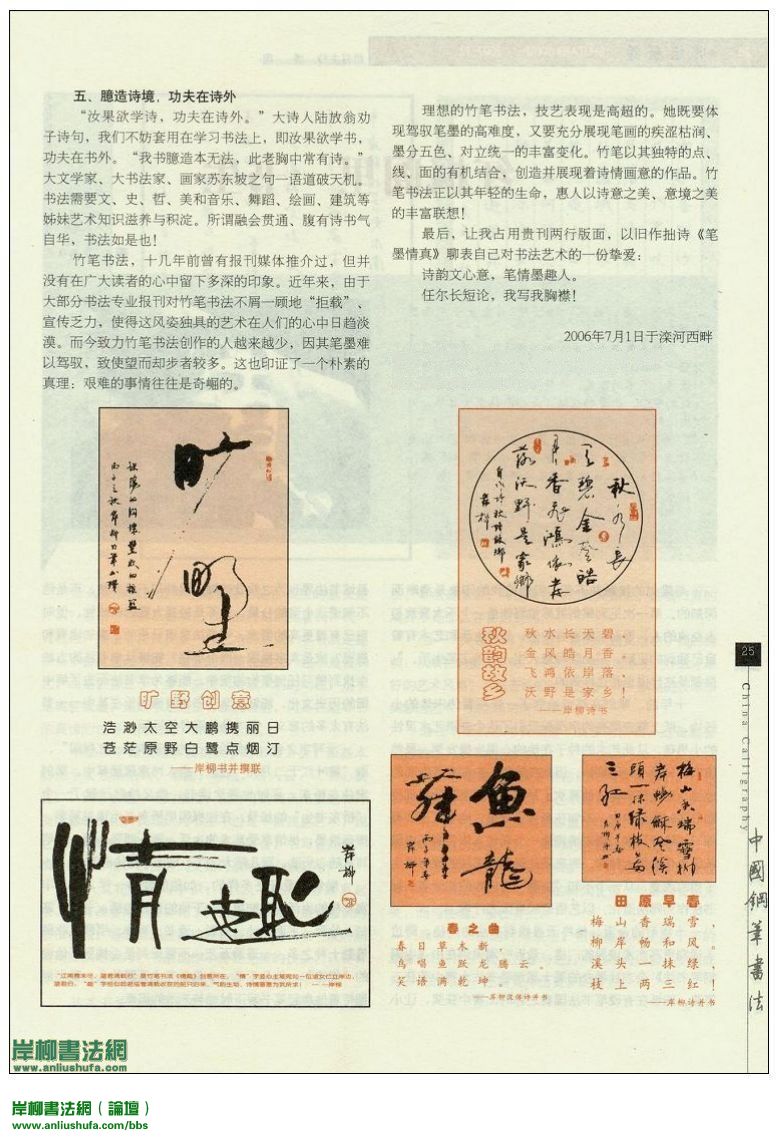 五、臆造诗境，功夫在诗外
“汝果欲学诗，功夫在诗外。”大诗人陆放翁劝
子诗句，我们不妨套用在学习书法上，即汝果欲学书，
功夫在书外。“我书臆造本无法，此老胸中常有诗。”
大文学家、大书法家、画家苏东坡之句一语道破天机。
书法需要文、史、哲、美和音乐、舞蹈、绘画、建筑等
姊妹艺术知识滋养与积淀。所谓融会贯通、腹有诗书气
自华，书法如是也！
竹笔书法，十几年前曾有报刊媒体推介过，但并
没有在广大读者的心中留下多深的印象。近年来，由于
大部分书法专业报刊对竹笔书法不屑一顾地“拒载”、
宣传乏力，使得这风姿独具的艺术在人们的心中日趋淡
漠。而今致力竹笔书法创作的人越来越少，因其笔墨难
以驾驭，致使望而却步者较多。这也印证了一个朴素的
真理：艰难的事情往往是奇崛的。
理想的竹笔书法，技艺表现是高超的。她既要体
现驾驭笔墨的高难度，又要充分展现笔画的疾涩枯润、
墨分五色、对立统一的丰富变化。竹笔以其独特的点、
线、面的有机结合，创造并展现着诗情画意的作品。竹
笔书法正以其年轻的生命，惠人以诗意之美、意境之美
的丰富联想！
最后，让我占用贵刊两行版面，以旧作拙诗《笔
墨情真》聊表自己对书法艺术的一份挚爱：
诗韵文心意，笔情墨趣人。
任尔长短论，我写我胸襟！
2006年7月1日于滦河西畔
旷野
旷野创意
浩渺太空大鹏携丽日
苍茫原野白鹭点烟汀
——岸柳书并撰联
情趣
岸柳
秋水长
天碧金
风皓
月香飞鸿依岸
落沃野是家乡
岸柳
秋韵故乡
秋水长天碧，
金风皓月香。
飞鸿依岸落，
沃野是家乡！
——岸柳诗书
鱼龙
舞
岸柳
春之曲
春日草木新，
鸟唱鱼跃龙腾云。
笑语满乾坤
梅山香瑞雪柳
岸畅和风溪
头一抹绿枝
两三红
田原早春
梅山香瑞雪，
柳岸畅和风。
溪头一抹绿，
枝上两三红！
——岸柳诗并书
25
China Calligraphy
中國鋼筆書法
岸柳書法網
www.anliushufa.com
岸柳書法網（論壇）
www.anliushufa.com/bbs